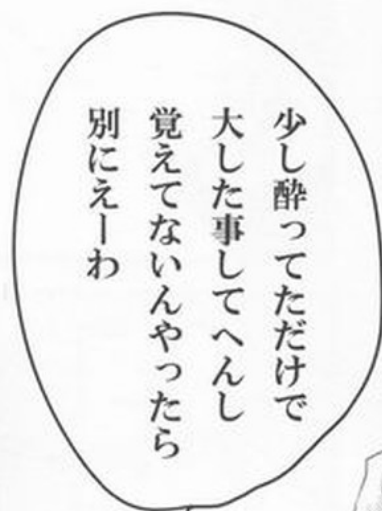 少し酔ってただけで
大した事してへんし
覚えてないんやったら
別にえーわ